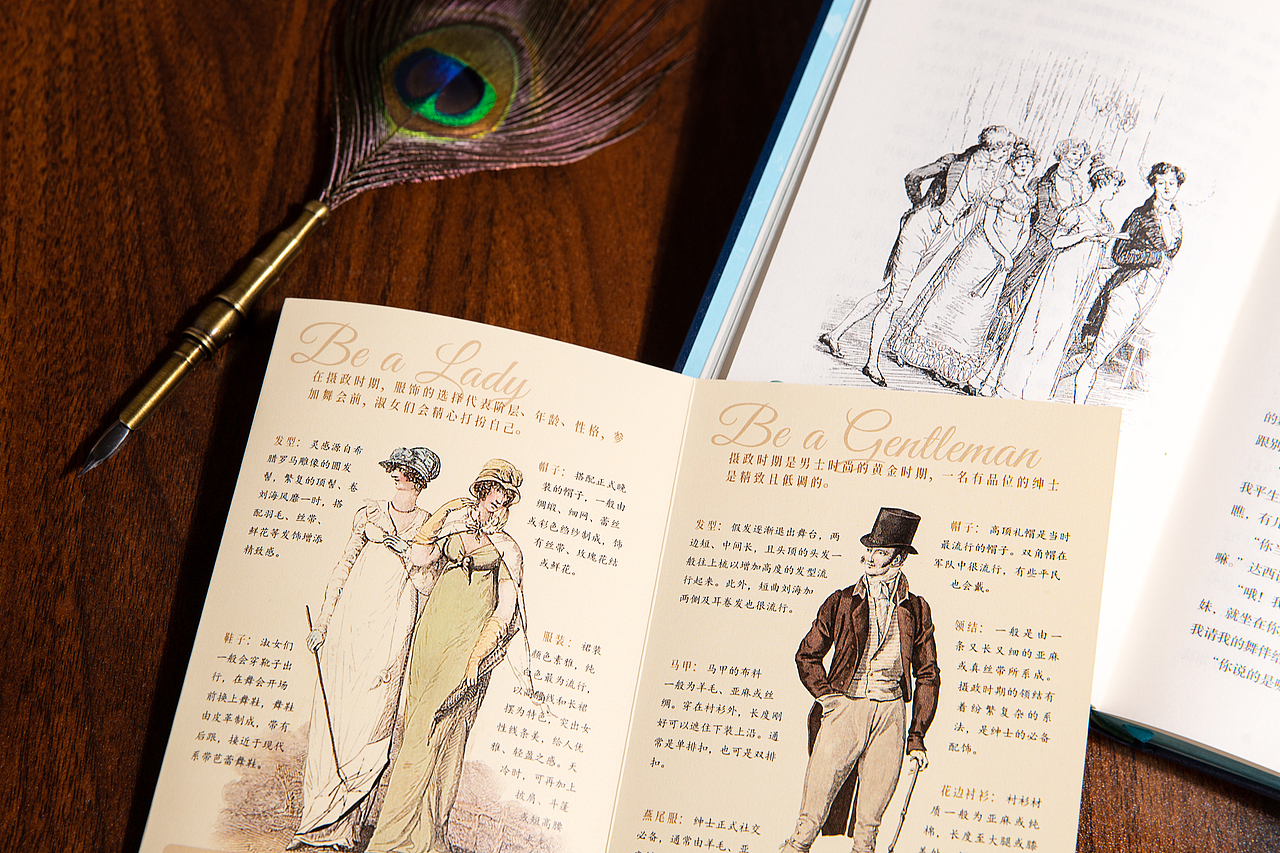 Be a Lady
在摄政时期，服饰的选择代表阶层、年龄、性格，参
加舞会前，淑女们会精心打扮自己。
发型：灵感源自希
腊罗马雕像的圆发
髻，繁复的顶髻、卷
刘海风靡一时，搭
配羽毛、丝带、
鲜花等发饰增添
精致感。
帽子：搭配正式晚
装的帽子，一般由
绸缎、细网、蕾丝
或彩色绉纱制成，饰
有丝带、玫瑰花结
或鲜花。
鞋子：淑女们
一般会穿靴子出
行，在舞会开场
前换上舞鞋，舞鞋
由皮革制成，带有
后跟，接近于现代
系带芭蕾舞鞋。
服装：裙装
颜色素雅，纯
白色最为流行，
以高腰线和长裙
摆为特色，突出女
性线条美，给人优
雅、轻盈之感。天
冷时，可再加上
披肩、斗篷
或短高腰
Be a Gentleman
摄政时期是男士时尚的黄金时期，一名有品位的绅士
是精致且低调的。
发型：假发逐渐退出舞台，两
边短、中间长，且头顶的头发一
般往上梳以增加高度的发型流
行起来。此外，短曲刘海加
两侧及耳卷发也很流行。
帽子：高顶礼帽是当时
最流行的帽子。双角帽在
军队中很流行，有些平民
也会戴。
马甲：马甲的布料
一般为羊毛、亚麻或丝
绸。穿在衬衫外，长度刚
好可以遮住下装上沿。通
常是单排扣，也可是双排
扣。
领结：一般是由一
条又长又细的亚麻
或真丝带所系成。
摄政时期的领结有
着纷繁复杂的系
法，是绅士的必备
配饰。
燕尾服：绅士正式社交
必备，通常由羊毛、亚
花边衬衫：衬衫材
质一般为亚麻或纯
棉，长度至大腿或膝
跟别
我平生
瞧，有几
“你
嘛。”达西
“哦！我
妹，就坐在你
我请我的舞伴给
“你说的是